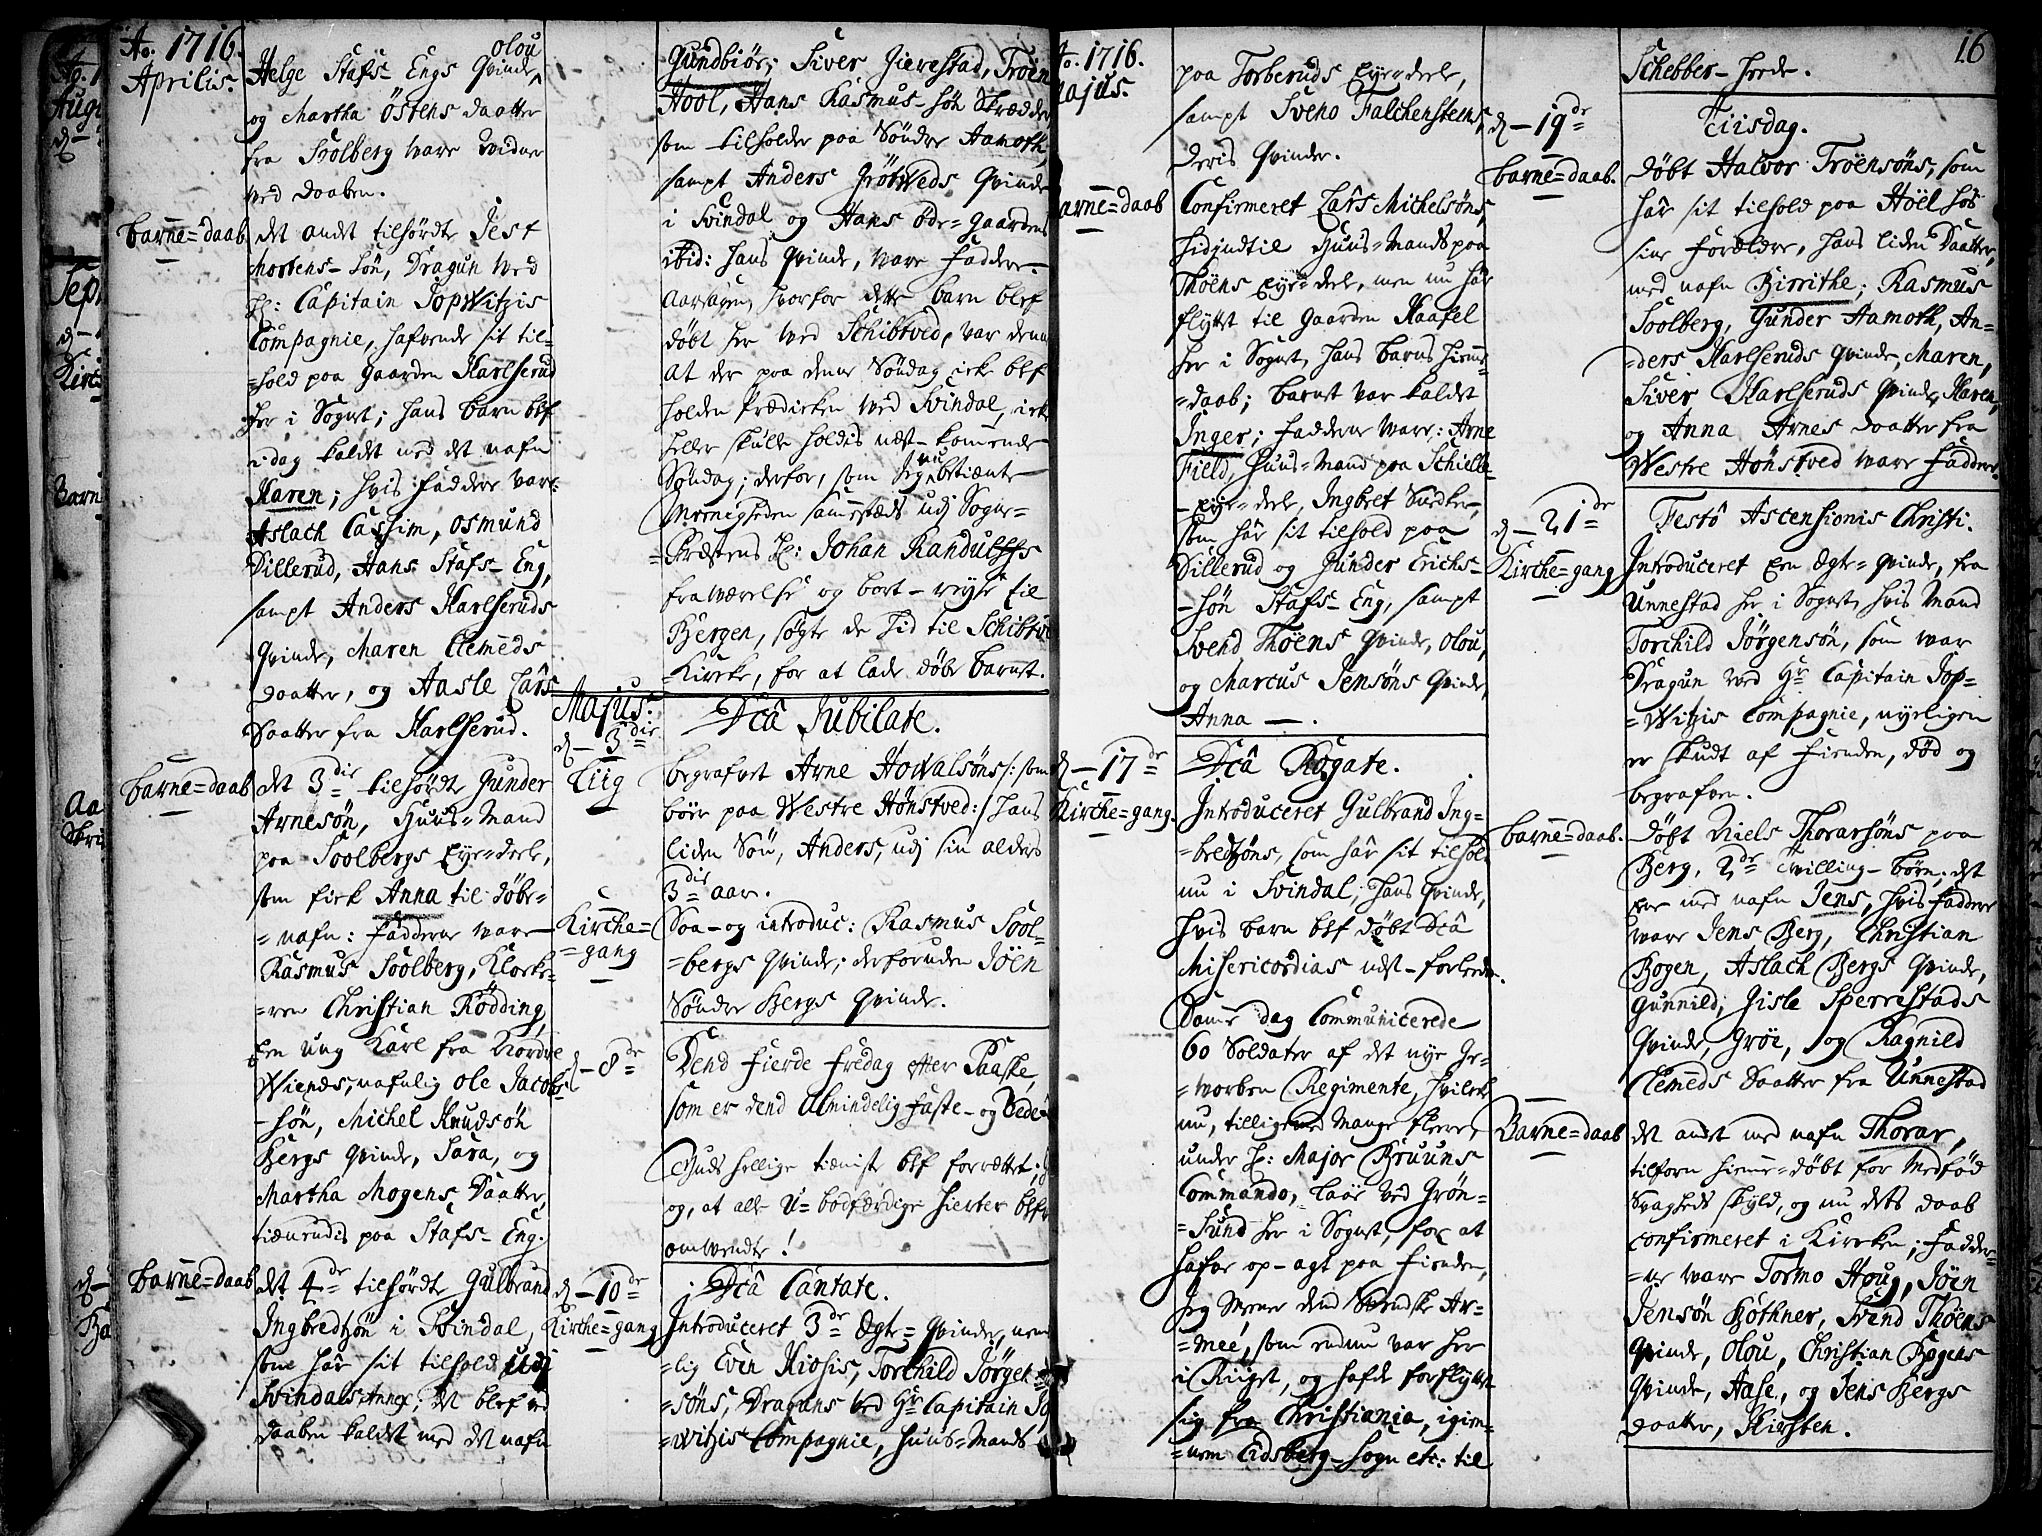 Ao. 1716.
Aprilis.
Helge Stafs-Engs Qvinde, olou
og Martha Östens daatter
fra Soolberg ware Vidner
ved daaben.
barne=daab
det andet tilhördte Jest
Mortens-Sön, Dragun ved
H: Capitain JopWitzis
Compagnie, hafvende sit til-
=hold poa gaarden Karlserud
her i Sognet; hans barn blef
idag kaldet med det nafn
Karen; hvis faddere vare
Aslach Cassim, Osmund
Dillerud, Hans Stafs-Eng,
sampt Anders Karlseruds
Qvinde, Maren Clemeds
daatter, og Aasle Lârs
Daatter fra Karlserud.
barne=daab
det 3die tilhördte Gunder
Arnesön, Huus=Mand
poa Soolbergs Eye=deele,
som fick Anna til döbe=
=nafn: fadderne ware
Rasmus Soolberg, Klocke-
=ren Christian Rödding,
Een ung Karl fra Nordre
Wiends, nafnlig Ole Jacobs
-sön, Michel Knudsön
Bergs Qvinde, Sara, og
Martha Mogens Daatter,
tienendis poa Stafs-Eng.
barne=daab
det 4de tilhördte Gulbrand
Ingbredtzön i Svindal,
som hâr sit tilhold udj
Svindals Annex; det blef ved
daaben kaldet med det nafn
Gundbiör; Siver Jierestad, Tröen
Hool, Hans Rasmus-sön Skrædder
som tilholder poa Söndre Aamoth,
sampt Anders GrötWeds Qvinde
i Svindal og Hans öde-gaardens
ibid: hans Qvinde, ware Faddere.
Aarsagen, hvorfor dette barn blef
döbt her ved Schibtved, var denne
At der poa denne Söndag icke blef
holden Prædicken ved Svindal, icke
heller skulle holdis næst-kommende
Söndag; derfor, som Jeg nu betiente
Meenigheden sammestæds udj Sogne=
=Præstens H: Johan Randulffs
fraværelse og bort-reyse til
Bergen, sögte de hid til Schibtved
Kircke, for at lade döbe barnet.
Majus.
d-3die
Dca Jubilate.
Liig
begrafvet Arne Howalsöns /: som
boer poa Westre Hönstved:/ hans
liden Sön, Anders, udj sin alders
3die aar.
Kirche=
=gang
Soa-og introduc: Rasmus Sool-
=bergs Qvinde; desforuden Jöen
Söndre Bergs Qvinde.
d-8de
Dend fierde fredag efter Paaske,
som er dend Almindelig faste-og bede-
Guds hellige tieniste blef forrettet;
og, at alle U-bodfærdige hierter blefve
omvendte!
d-10de
Dca Cantate.
Kirche=gang
Introduceret 3de Ægte=Qvinder, nem-
=lig Even Kiosis, Torchild Jörgen-
=söns, Draguns ved Hr Capitain Jop
=Witzis Compagnie, Huus=Mands
Ao. 1716.
Majus.
poa Torberuds Eye=deele,
sampt Sveno Falchensteens,
deris Qvinder.
barne=daab
Confirmeret Lârs Michelsöns,
hidindtil Huus=Mands poa
Thöens Eye=deele, men nu hâr
flytt til gaarden Kaafel
her i Sognet, hans barns hieme-
=daab; barnet var kaldet
Inger; fadderne ware: Arne
Field, Huus-Mand poa Schielle
-Eye-deele, Ingbret Snedker,
som hâr sit tilhold poa
Dillerud og Gunder Erichs-
-sön Stafs-Eng, sampt
Svend Thöens Qvinde, Olou,
og Marcus Jensöns Qvinde,
Anna -.
d-17de
Dca Rogate.
Kirche=gang.
Introduceret Gulbrand Ing=
=bredtzöns, som hâr sit tilhold
nu i Svindal, hans Qvinde,
hvis barn blef döbt Dca
Misericordias nest-forleden.
Samme dag Communicerede
60 Soldater af det nye Ge=
=worben Regimente, hvilcke
nu, tilligemed mange fleere,
under H: Major Bruuns
Commando, laae ved Grön=
=Sund her i Sognet, for at
hafve op-agt poa fienden,
Jeg Meener dend Svendske Ar=
=mee, som endnu var her
i Riiget, og hafde forflyttet
sig fra Christiania, igien=
=nem Eidsberg-Sogn etc: til
16
Schebber-Herde.
d-19de
Tiisdag.
barne=daab.
döbt Halvor Tröensöns, som
hâr sit tilhold poa Höel hos
sine forældre, hans liden Daatter,
med nafn Birrithe; Rasmus
Soolberg, Gunder Aamoth, An=
=ders Karlseruds Qvinde, Maren,
Siver Karlseruds Qvinde, Karen,
og Anna Arnes daatter fra
Westre Hönstved ware Faddere.
d-21de
Festo Ascensionis Christi.
Kirche=gang
Introduceret Een Ægte=Qvinde, fra
Unnestad her i Sognet, hvis Mand
Torchild Jörgensön, som war
Dragun ved Hr Capitain Jop=
=Witzis Compagnie, nyeligen
er skudt af Fienden, död og
begrafven.
barne=daab.
döbt Niels Thorarsöns poa
Berg, 2de Tvilling-börn; det
eene med nafn Jens, hvis faddere
ware Jens Berg, Christian
Bogen, Aslach Bergs Qvinde,
Gunnild; Gisle Sperrestads
Qvinde, Gröe, og Ragnild
Clemeds Daatter fra Unnestad
Barne=daab
det andet med nafn Thorar,
tilforn hieme=döbt for Medföd
Svagheds skyld, og nu dets daab
confirmeret i Kircken; fadder-
=ne ware Tormo Houg, Jöen
Jensön Böthner, Svend Thöens
Qvinde, Olou, Christian Bogens
Qvinde, Aase, og Jens Bergs
daatter, Kirsten.